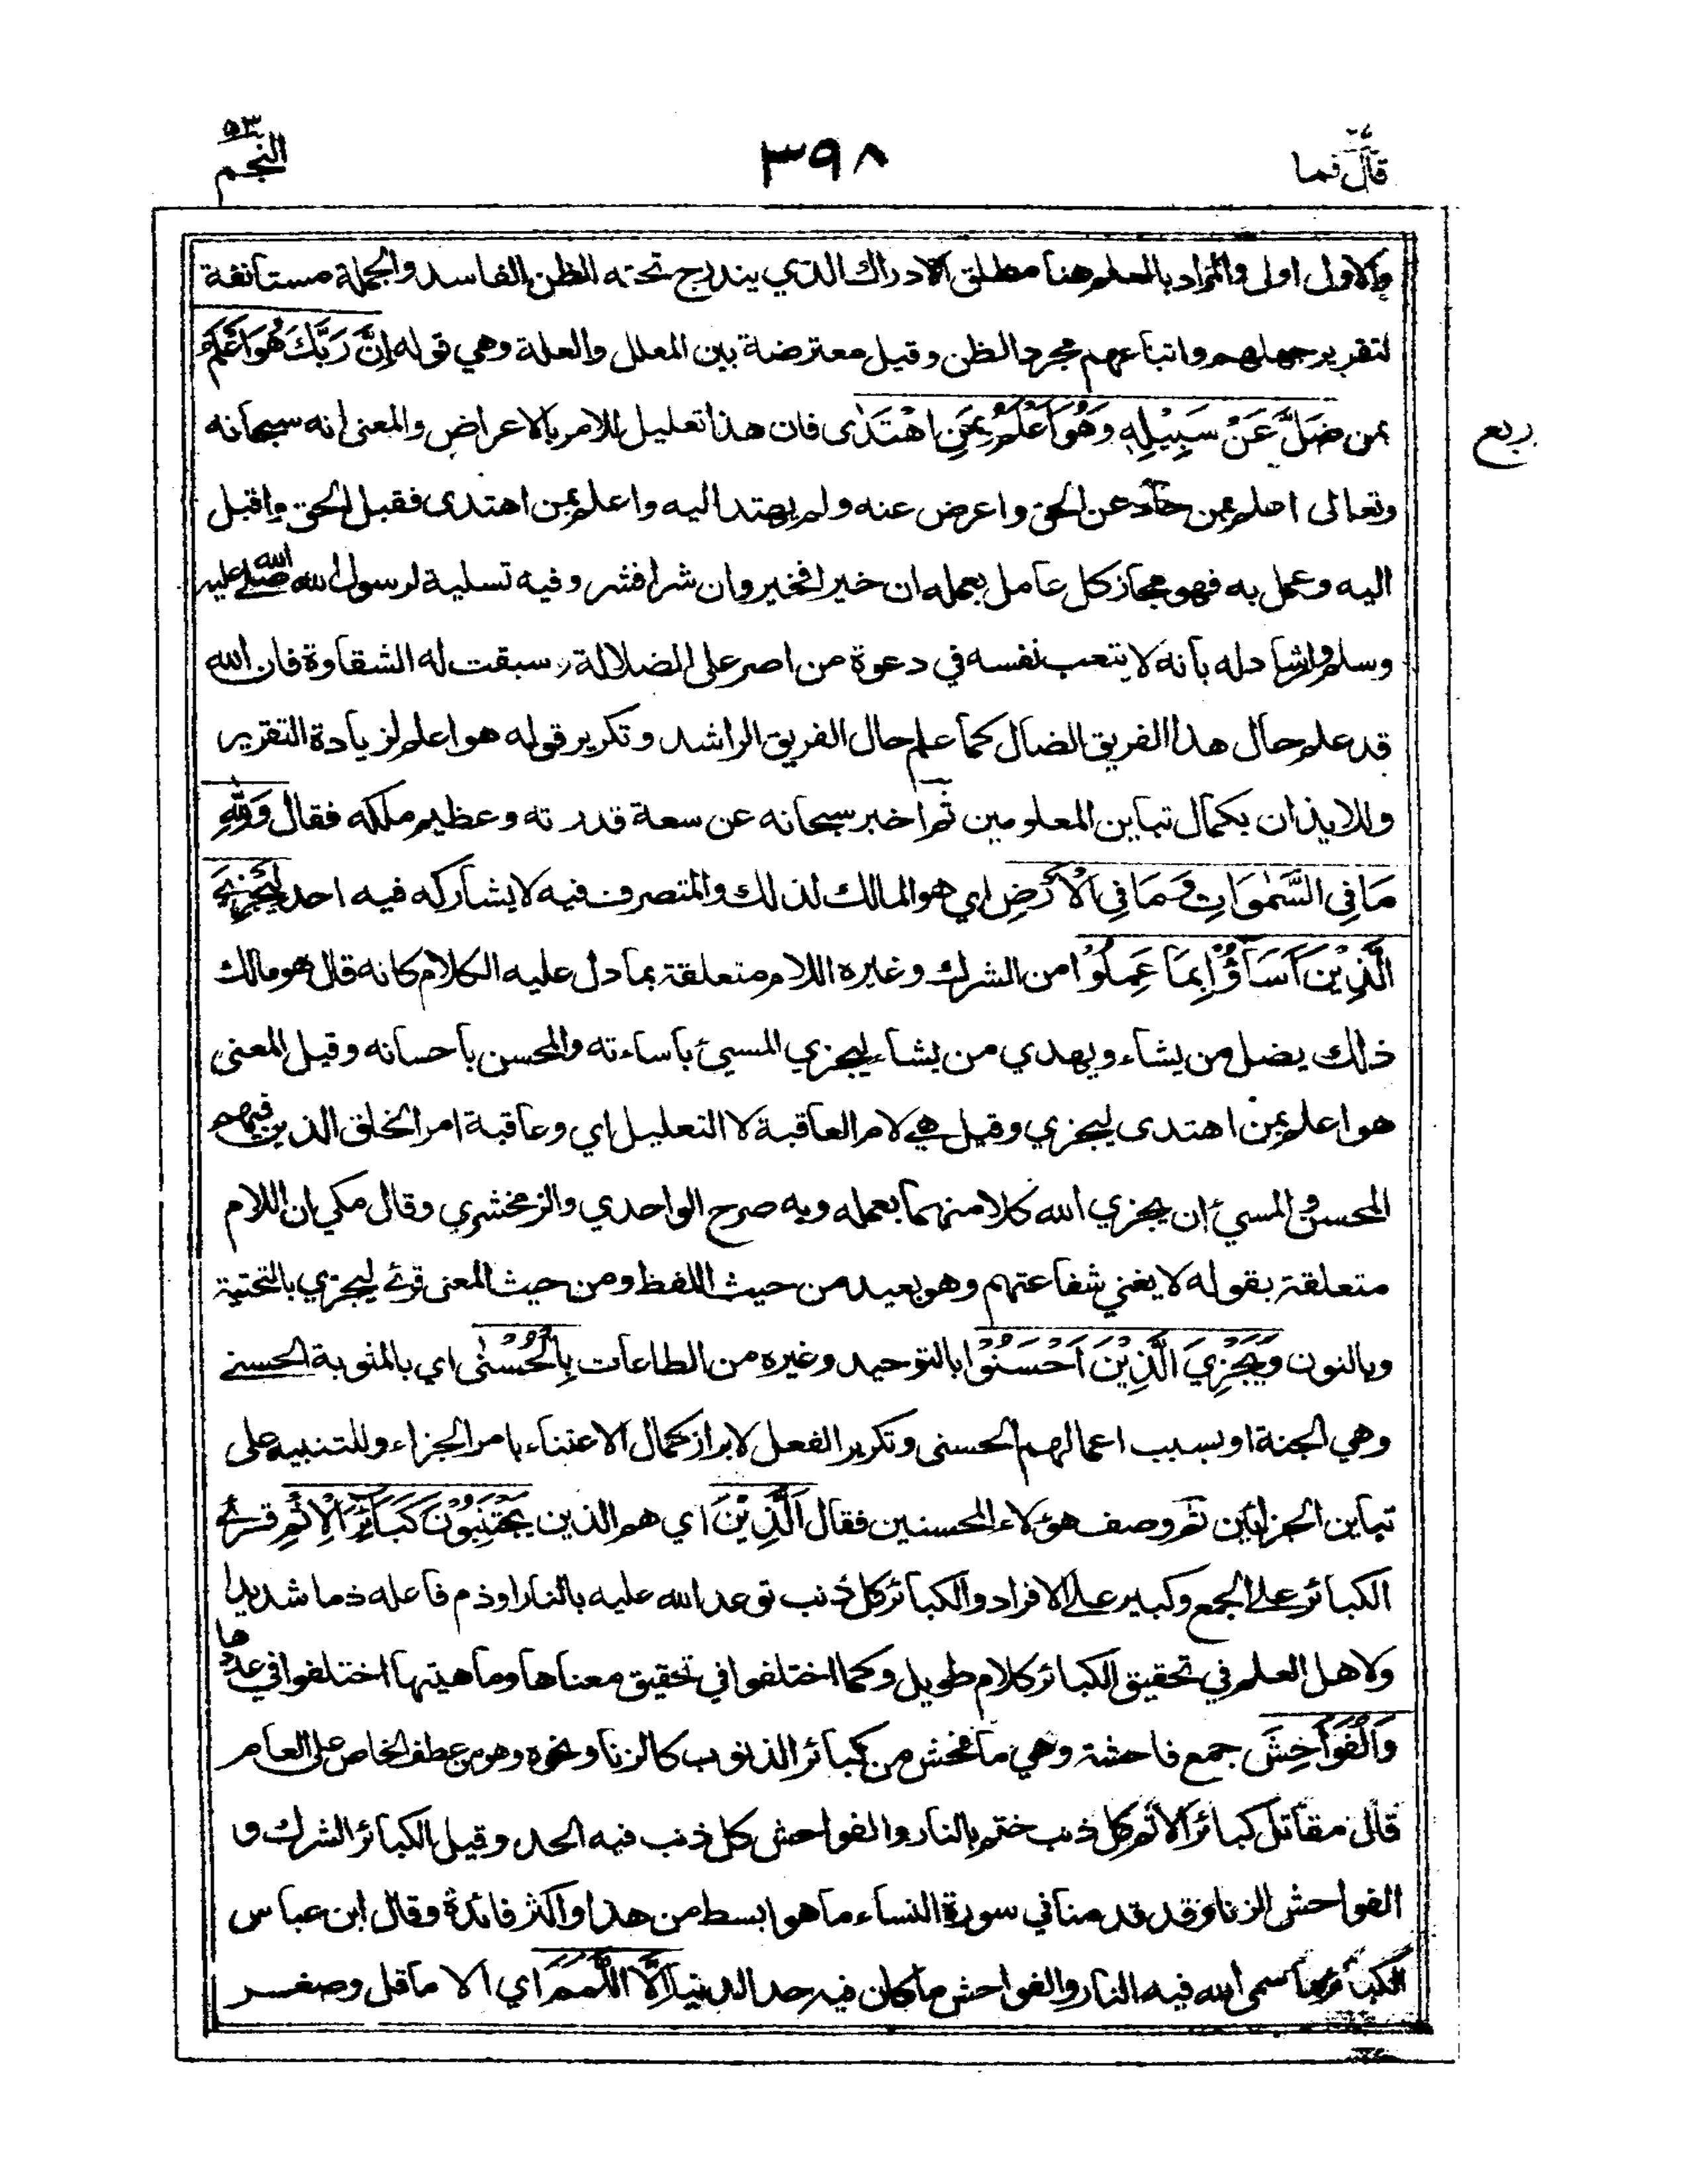 قال فما ٢٧
٣٩٨
النجم ٥٣
والاول اولى والمراد بالعلم هنا مطلق الادراك الذي يندرج تحته الظن الفاسد والجملة مستأنفة
لتقرير جهلهم واتباعهم مجرد الظن وقيل معترضة بين المعلل والعلة وهي قوله اِنَّ رَبَّكَ هُوَ اَعْلَمُ
بمن ضَلَّ عَنْ سَبِيْلِهٖ وَهُوَ اَعْلَمُ بِمَنِ اهْتَدٰى فان هذا تعليل للامر بالاعراض والمعنى انه سبحانه
ربع
وتعالى اعلم بمن حاد عن الحق واعرض عنه ولم يهتد اليه واعلم بمن اهتدى فقبل الحق واقبل
اليه وعمل به فهو مجاز كل عامل بعمله ان خيرا فخير وان شرا فشر وفيه تسلية لرسول الله صلى الله عليه
وسلم وارشاد له بأنه لا يتعب نفسه في دعوة من اصر على الضلالة وسبقت له الشقاوة فان الله
قد علم حال هذا الفريق الضال كما علم حال الفريق الراشد وتكرير قوله هو اعلم لزيادة التقرير
وللايذان بكمال تباين المعلومين ثم اخبر سبحانه عن سعة قدرته وعظيم ملكه فقال وَلِلّٰهِ
مَا فِي السَّمٰوَاتِ وَمَا فِي الْاَرْضِ اي هو المالك لذلك والمتصرف فيه لا يشاركه فيه احد لِيَجْزِيَ
الَّذِيْنَ اَسَآؤُا بِمَا عَمِلُوْا من الشرك وغيره اللام متعلقة بما دل عليه الكلام كانه قال هو مالك
ذلك يضل من يشاء ويهدي من يشاء ليجزي المسيئ بأساءته والمحسن بأحسانه وقيل المعنى
هو اعلم بمن اهتدى ليجزي وقيل هي لام العاقبة لا التعليل اي وعاقبة امر الخلق الذين فيهم
المحسن والمسيئ ان يجزي الله كلا منهما بعمله وبه صرح الواحدي والزمخشري وقال مكي ان اللام
متعلقة بقوله لا يغني شفاعتهم وهو بعيد من حيث اللفظ ومن حيث المعنى قرئ ليجزي بالتحتية
وبالنون وَيَجْزِيَ الَّذِيْنَ اَحْسَنُوْا بالتوحيد وغيره من الطاعات بِالْحُسْنٰى اي بالمثوبة الحسنى
وهي الجنة او بسبب اعمالهم الحسنى وتكرير الفعل لابراز كمال الاعتناء بامر الجزاء وللتنبيه على
تباين الجزائين ثم وصف هؤلاء المحسنين فقال اَلَّذِيْنَ اي هم الذين يَجْتَنِبُوْنَ كَبَآئِرَ الْاِثْمِ قرئ
الكبائر على الجمع وكبير على الافراد والكبائر كل ذنب توعد الله عليه بالنار او ذم فاعله ذما شديدا
ولاهل العلم في تحقيق الكبائر كلام طويل وكما اختلفوا في تحقيق معناها وماهيتها اختلفوا في عددها
وَالْفَوَاحِشَ جمع فاحشة وهي ما فحش من كبائر الذنوب كالزنا ونحوه وهو من عطف الخاص على العام
قال مقاتل كبائر الاثم كل ذنب ختم بالنار والفواحش كل ذنب فيه الحد وقيل الكبائر الشرك و
الفواحش الزنا وقد قدمنا في سورة النساء ما هو ابسط من هذا واكثر فائدة وقال ابن عباس
الكبائر ما سمى الله فيه النار والفواحش ما كان فيه حد الدنيا اِلَّا اللَّمَمَ اي الا ما قل وصغر